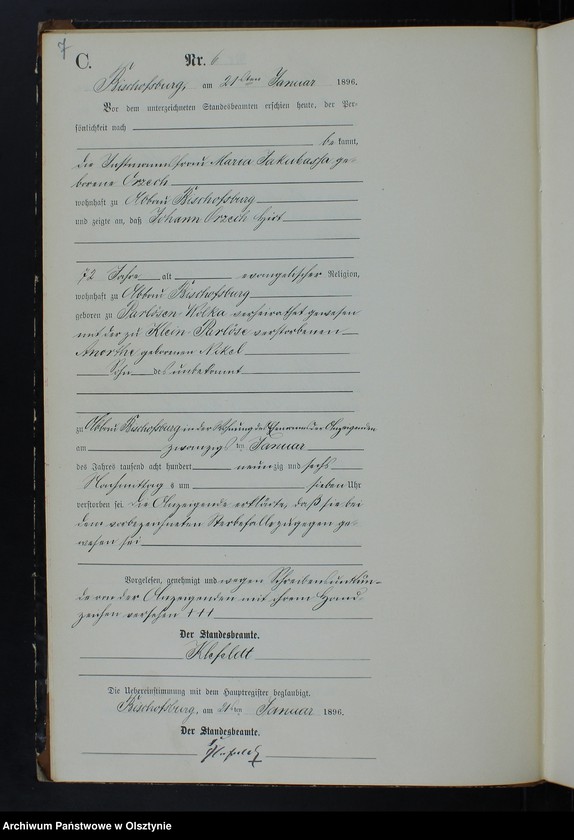 7
C.
Nr. 6
Bischofsburg, am 21ten Januar 1896.
Vor dem unterzeichneten Standesbeamten erschien heute, der Per-
sönlichkeit nach
bekannt,
die Instmannfrau Maria Jakubassa ge-
borene Orzech
wohnhaft zu Abbau Bischofsburg
und zeigte an, daß Johann Orzech Hirt
72 Jahre alt evangelischer Religion,
wohnhaft zu Abbau Bischofsburg
geboren zu Parlösen Wolka verheirathet gewesen
mit der zu Klein Parlöse verstorbenen
geborenen Nikel
Sohn des unbekannt
zu Abbau Bischofsburg in der Wohnung des Ehemanns der Anzeigenden
am zwanzigsten Januar
des Jahres tausend acht hundert neunzig und sechs
Nachmittags um sieben Uhr
verstorben sei. Die Anzeigende erklärte, daß sie bei
dem vorbezeichneten Sterbefalle zugegen ge-
wesen sei
Vorgelesen, genehmigt und wegen Schreibensunkun-
de von der Anzeigenden mit ihrem Hand-
zeichen versehen +++
Der Standesbeamte.
Klefeldt
Die Uebereinstimmung mit dem Hauptregister beglaubigt.
Bischofsburg, am 21ten Januar 1896.
Der Standesbeamte.
Klefeldt
Archiwum Państwowe w Olsztynie